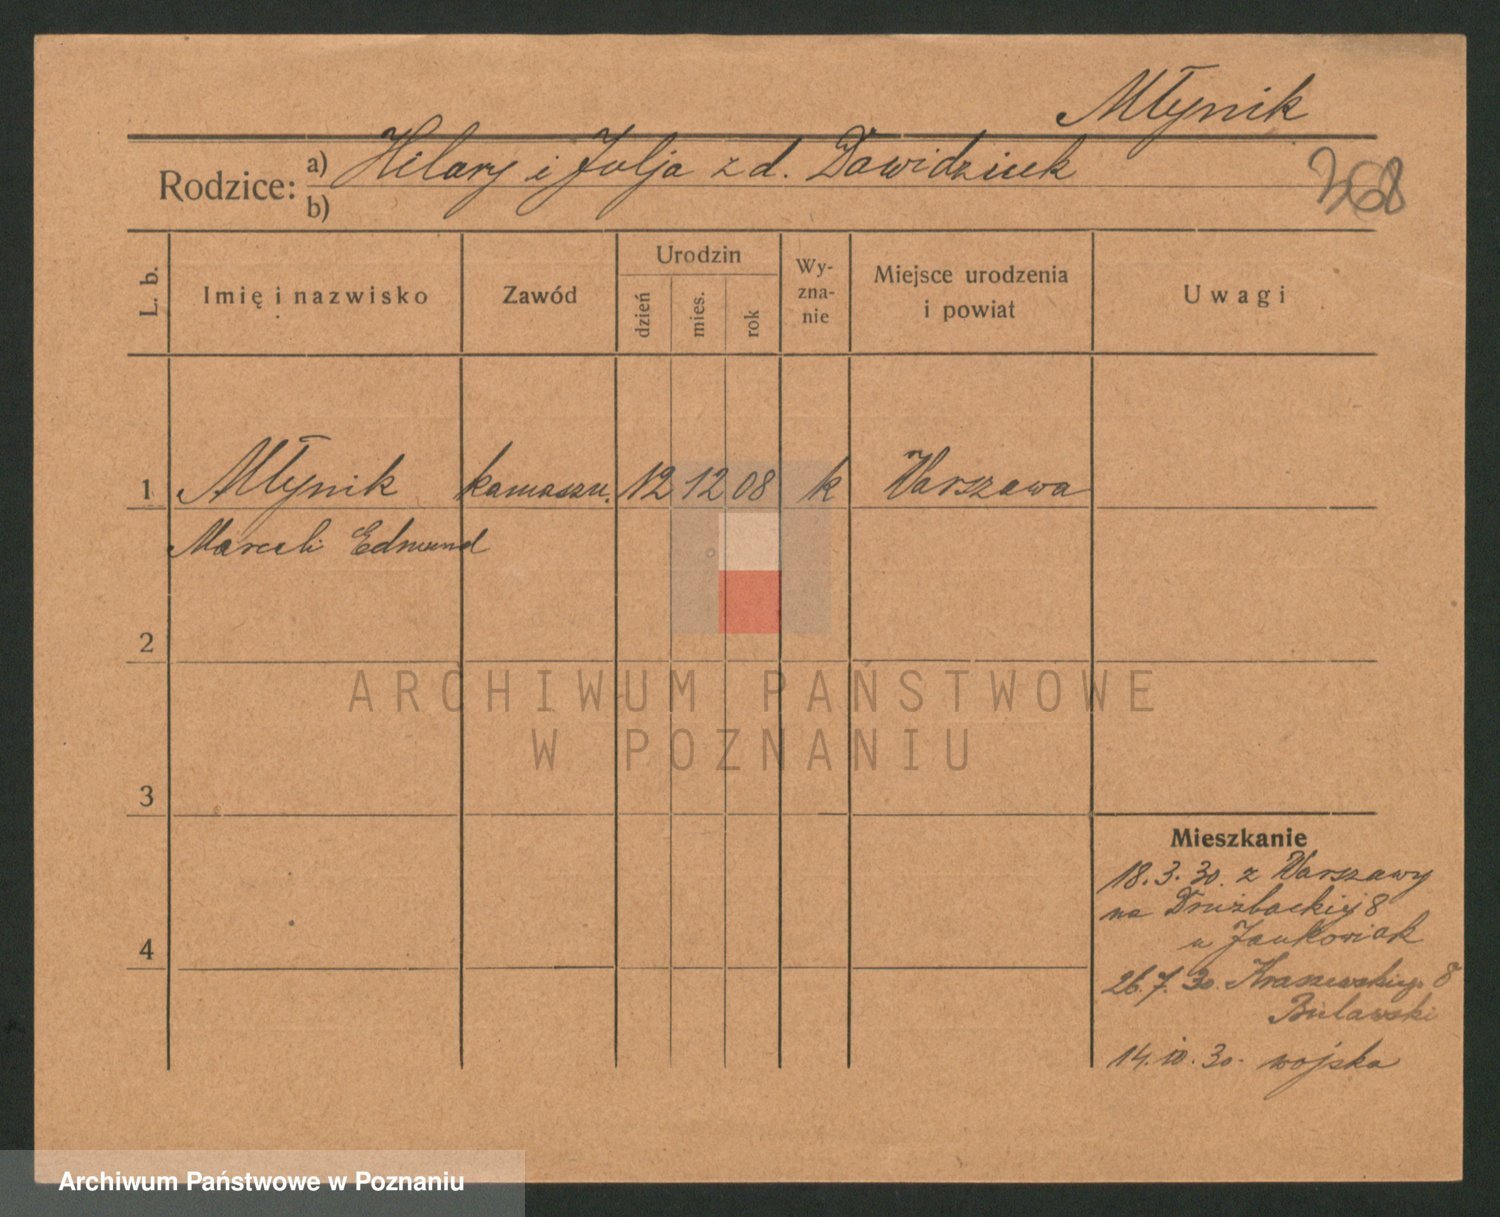 Młynik
Rodzice: a) Hilary i Julja z d. Dawidziuk
b)
368
L. b. Imię i nazwisko Zawód Urodzin dzień mies. rok Wy-zna-nie Miejsce urodzenia i powiat Uwagi
1 Młynik kamaszn. 12 12 08 k Warszawa
Marceli Edmund
2
ARCHIWUM PAŃSTWOWE
W POZNANIU
3
Mieszkanie
18.3.30. z Warszawy
na Drużbackiej 8
u Jankowiak
4
26.7.30. Kraszewskiego 8
Bulawski
14.10.30. wojska
Archiwum Państwowe w Poznaniu